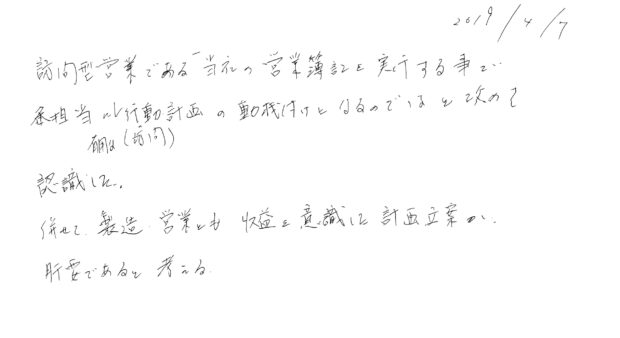 2019/4/7
訪問型営業である「当社の営業簿記を実行する事で
各担当の行動計画の動機付けとなるのではと改めて
(訪問)
認識した。
併せて、製造・営業とも収益を意識した計画立案が、
肝要であると考える。